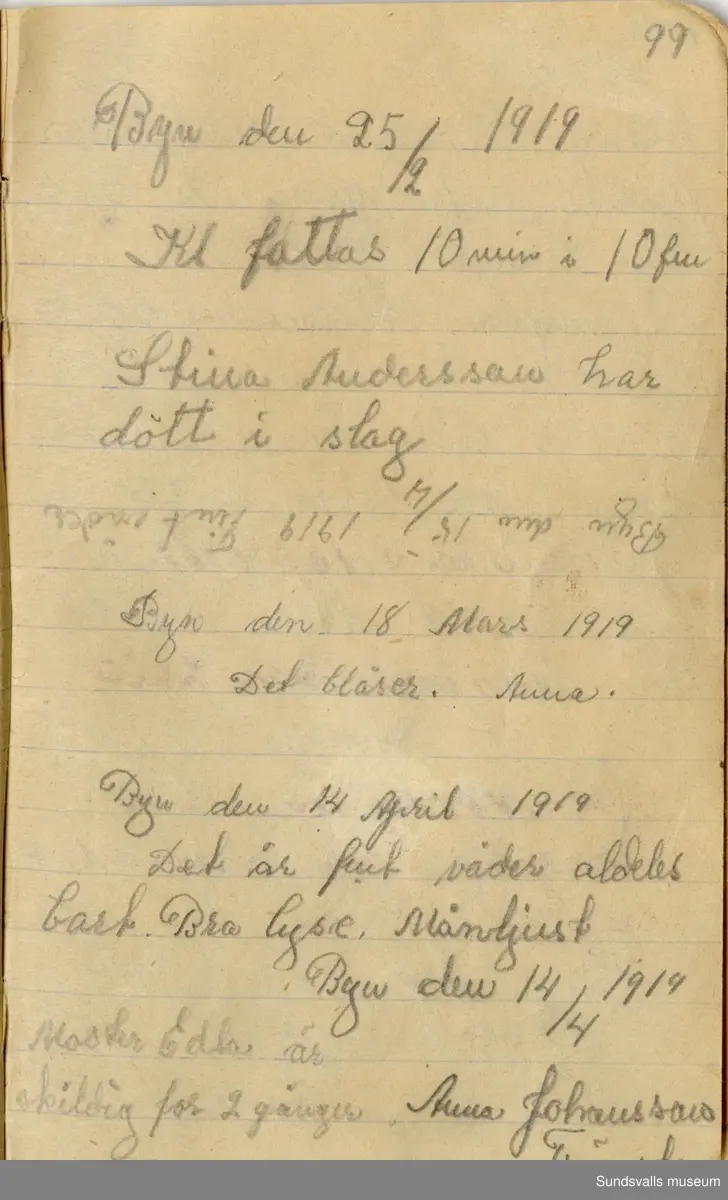 99
Byn den 25/2 1919
Kl fattas 10 min i 10 fm
Stina Andersson har
dött i slag
Byn den 15/4 1919 Fint väder
Byn den 18 Mars 1919
Det blåser. Anna.
Byn den 14 April 1919
Det är fint väder aldeles
bart. Bra lyse. Månljust
Byn den 14/4 1919
Moster Edla är
skildig for 2 gånger. Anna Johansson
Sundsvalls museum